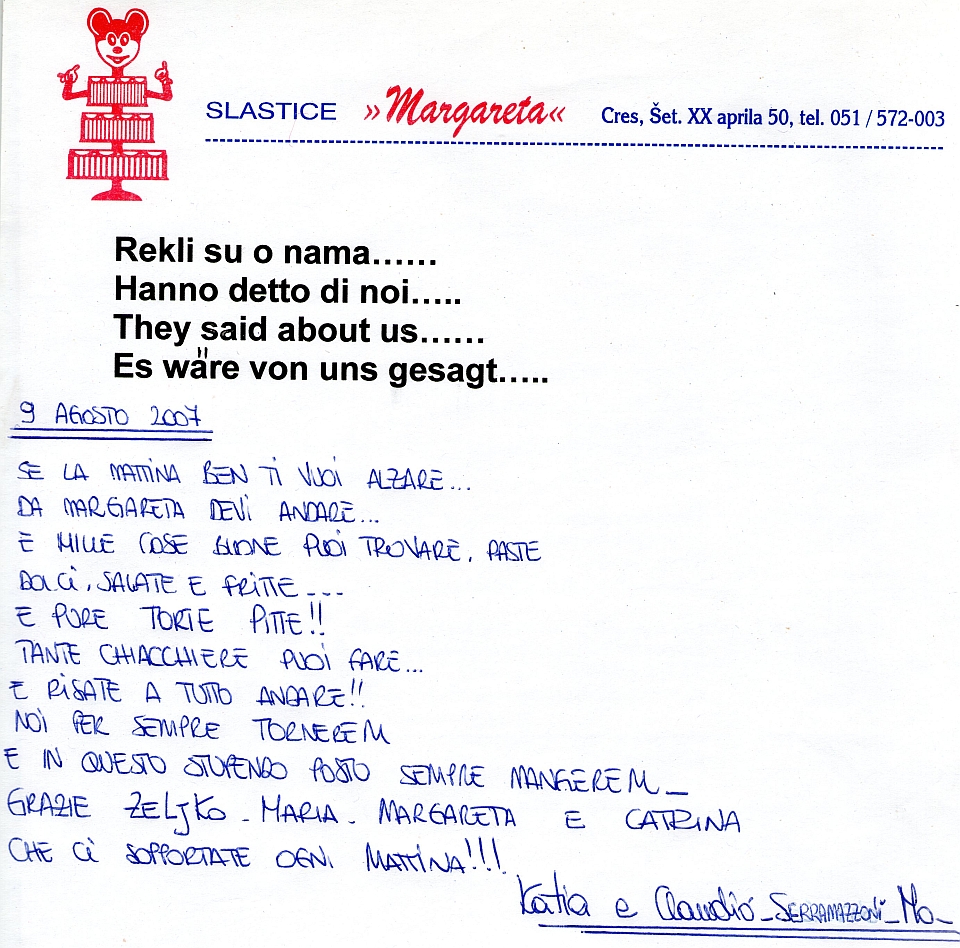 SLASTICE »Margareta« Cres, Šet. XX aprila 50, tel. 051 / 572-003
Rekli su o nama......
Hanno detto di noi.....
They said about us......
Es wäre von uns gesagt.....
9 AGOSTO 2007
SE LA MATTINA BEN TI VUOI ALZARE...
DA MARGARETA DEVI ANDARE...
E MILLE COSE BUONE PUOI TROVARE, PASTE
DOLCI, SALATE E FRITTE----
E PURE TORTE PITTE!!
TANTE CHIACCHIERE PUOI FARE...
E RISATE A TUTTO ANDARE!!
NOI PER SEMPRE TORNEREM
E IN QUESTO STUPENDO POSTO SEMPRE MANGEREM_
GRAZIE ZELJKO - MARIA - MARGARETA E CATRINA
CHE CI SOPPORTATE OGNI MATTINA!!!
Katia e Claudio - SERRAMAZZONI - Mo -